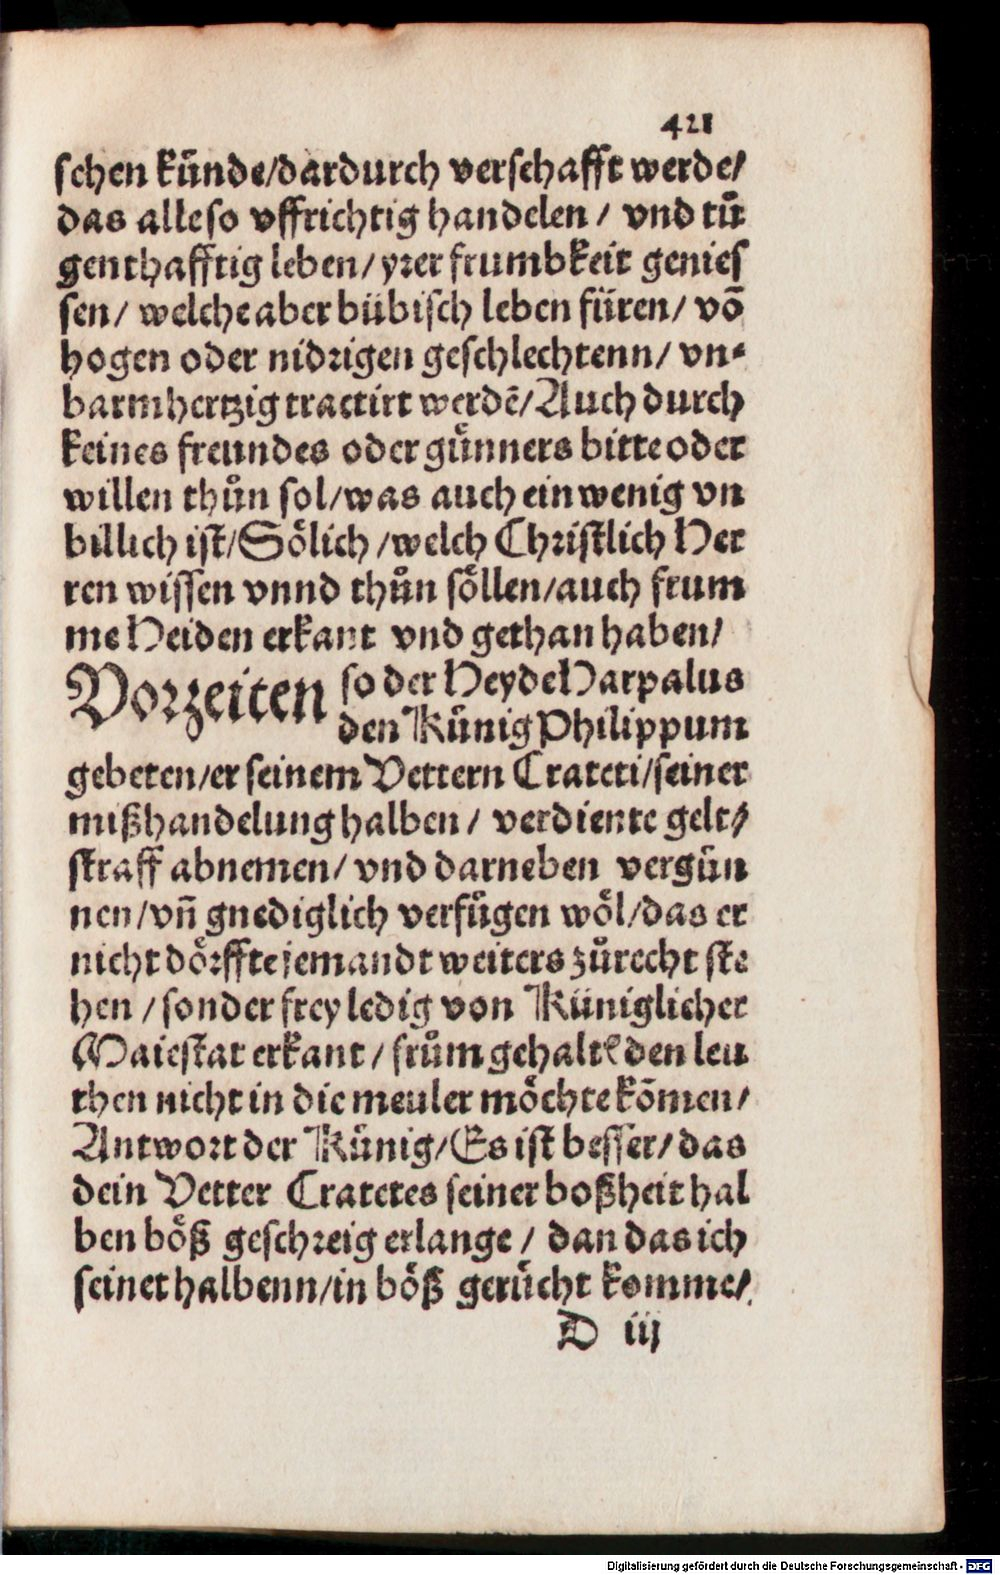 421
schen kuͤnde/dardurch verschafft werde/
das alle so vffrichtig handelen / vnd tuͤ
genthafftig leben/ yrer frumbkeit genies
sen/ welche aber bübisch leben füren/ vō
hogen oder nidrigen geschlechtenn/ vn⸗
barmhertzig tractirt werdē/Auch durch
keines freundes oder guͤnners bitte oder
willen thuͦn sol/was auch ein wenig vn
billich ist/Soͤlich /welch Christlich Her
ren wissen vnnd thuͦn soͤllen/auch frum
me Heiden erkant vnd gethan haben/
Vorzeiten so der Heyde Harpalus
den Kuͤnig Philippum
gebeten/er seinem Vettern Crateti/seiner
mißhandelung halben / verdiente gelt/
straff abnemen/ vnd darneben verguͤn
nen/vñ gnediglich verfuͤgen woͤl/das er
nicht doͤrffte jemandt weiters zuͦrecht ste
hen /sonder frey ledig von Küniglicher
Maiestat erkant / fruͦm gehaltē den leu
then nicht in die meuler moͤchte kōmen/
Antwort der Kuͤnig/Es ist besser/ das
dein Vetter Cratetes seiner boßheit hal
ben boͤß geschreig erlange / dan das ich
seinethalbenn/in boͤß geruͤcht komme/
D iij
Digitalisierung gefördert durch die Deutsche Forschungsgemeinschaft - DFG